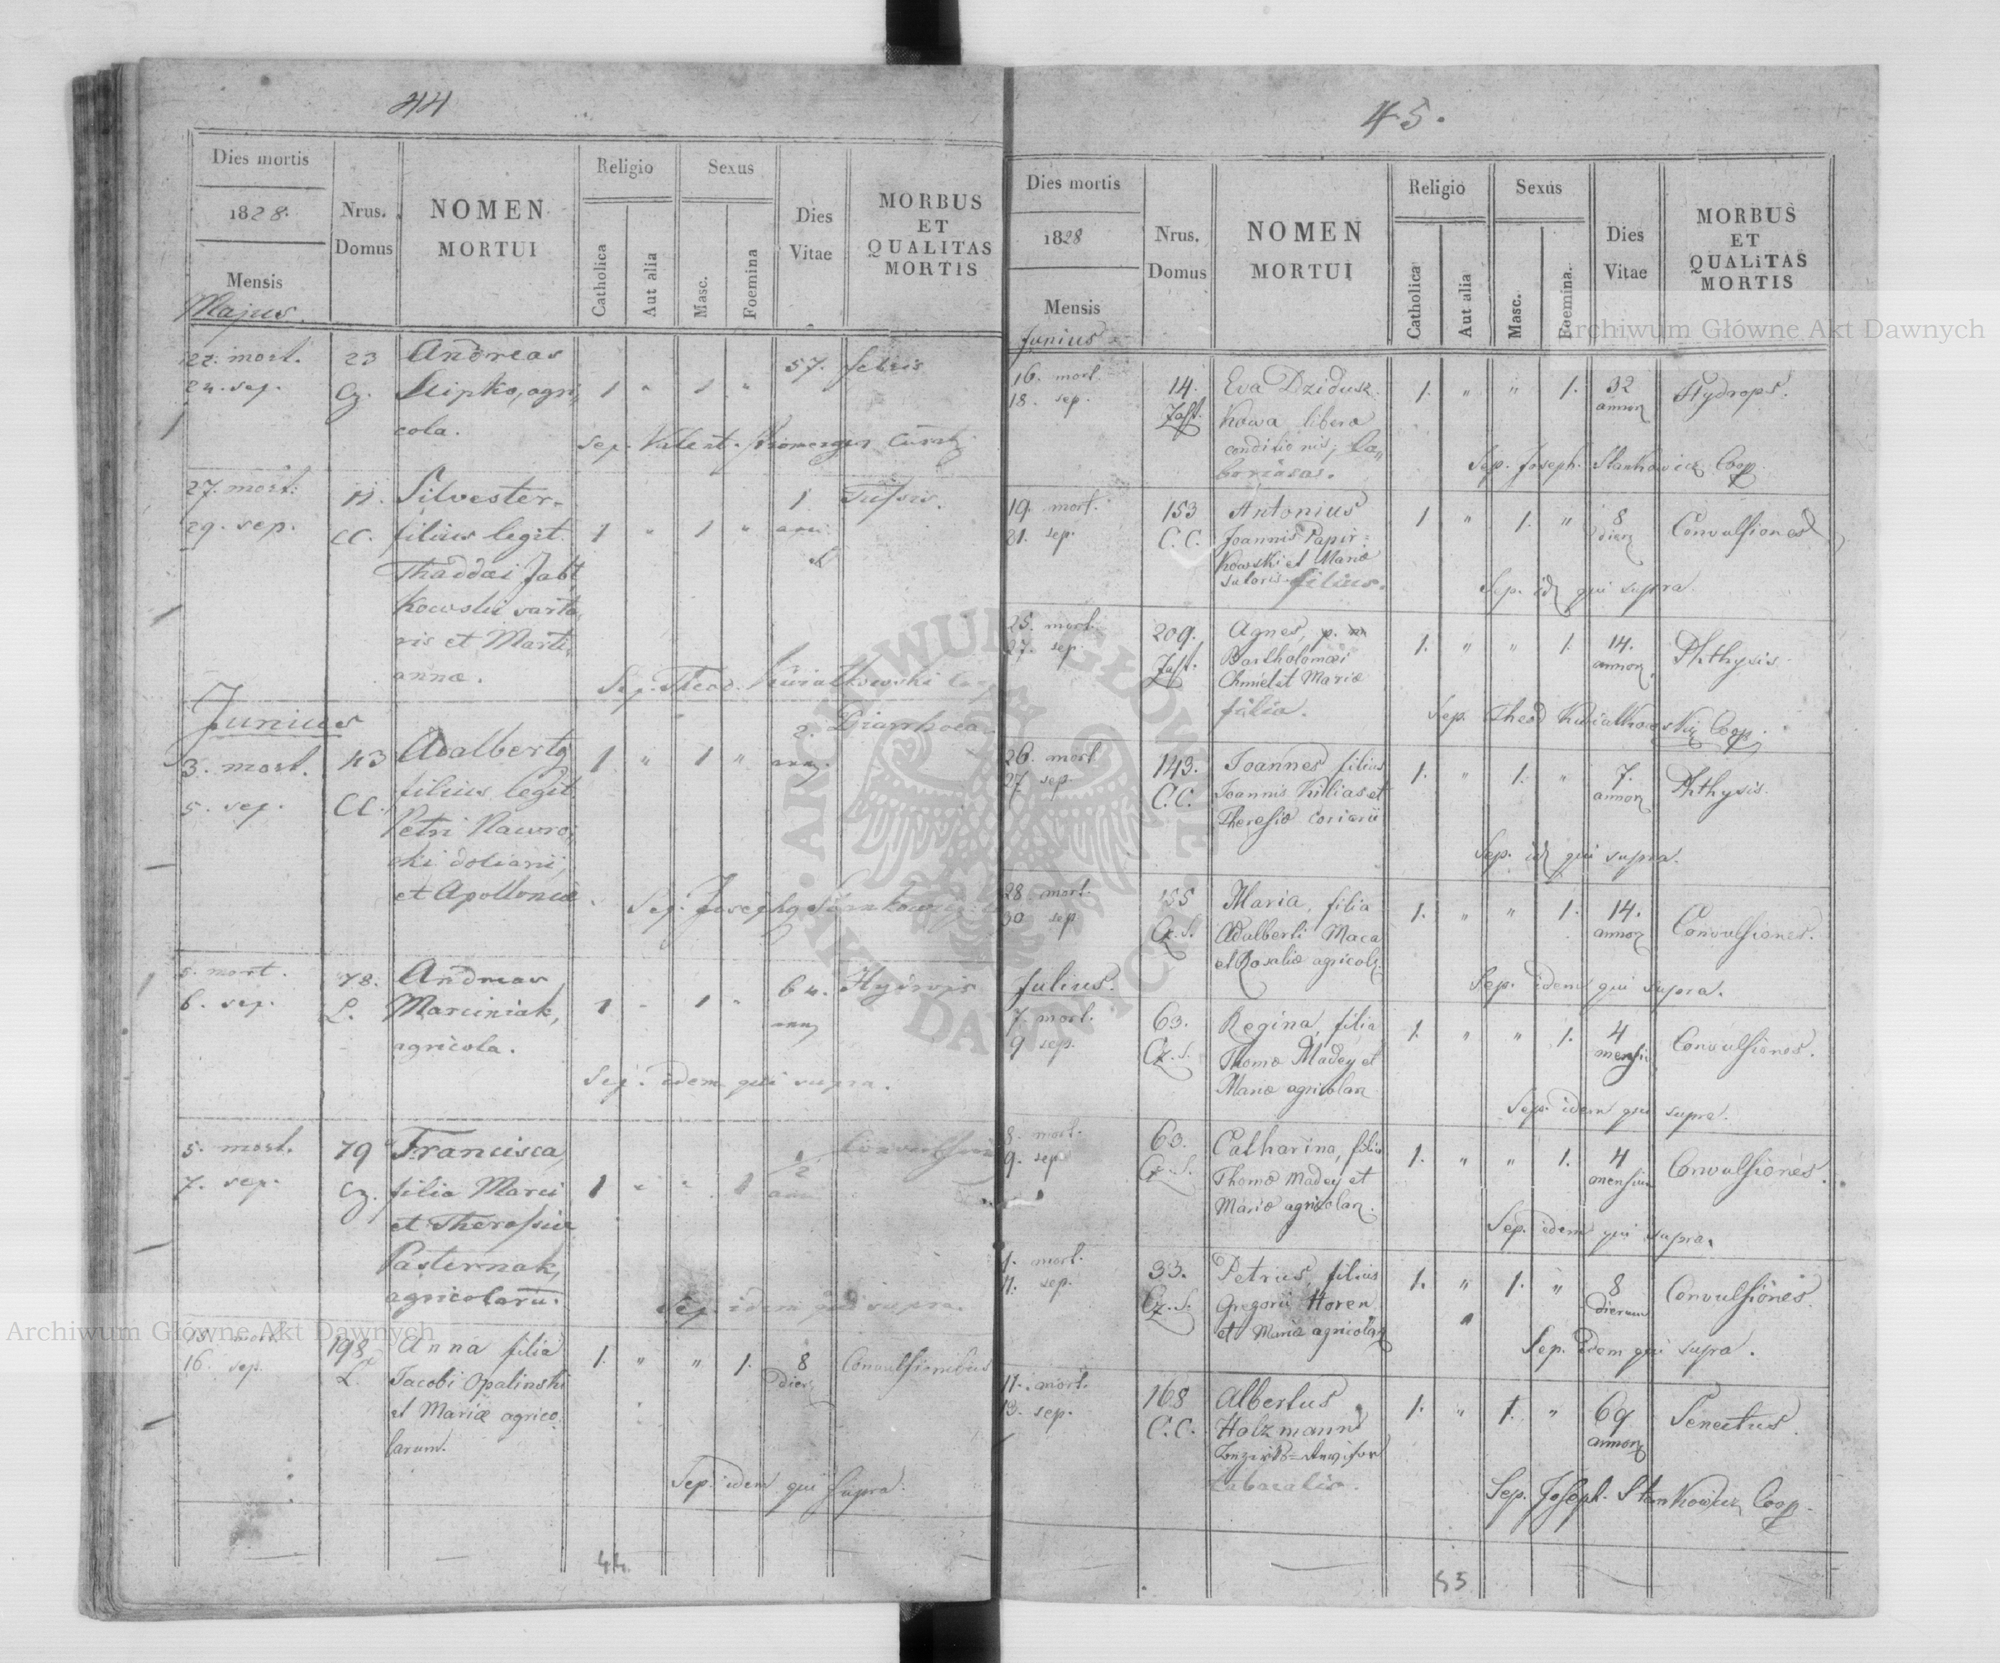 44
Dies mortis
1828.
Mensis
Majus.
Nrus.
Domus
NOMEN
MORTUI
Religio
Catholica
Aut alia
Sexus
Masc.
Foemina
Dies
Vitae
MORBUS
ET
QUALITAS
MORTIS
22. mort. 23 Andreas 57. febris
24. sep. Cz. agri,, 1 " 1 "
cola.
sep. Valent.
27. mort. Silvester 1 Tussis.
29. sep. CC. filius legit. 1 " 1 "
Thaddaei Jabł
kowski sarto,
ris et Mari,
annae.
Sep. Theod. Kwiatkowski
Junius
3. mort. 43 Adalbertg 2. Diarrhoea
5. sep. CC. filius legit. 1 " 1 "
Petri Nawro,
cki doliarii,
et Apolloniae.
Sep. Josephg Stankowicz
5. mort. 78. Andreas 64.
6. sep. L. Marciniak, 1 " 1 "
agricola.
Sep. idem qui supra.
5. mort. 79 Francisca, 1/2
7. sep. Cz. filia Marci 1 " " 1
et Theresiae
Pasternak,
agricolarū.
Sep. idem qui supra.
15. mort. 198 Anna filia 1. " " 1. 8 Convulsiones
16. sep. L. Jacobi Opalinski dier.
et Mariae agrico
larum.
Sep. idem qui supra.
44.
45.
Dies mortis
1828
Mensis
Junius
Nrus.
Domus
NOMEN
MORTUI
Religio
Catholica
Aut alia
Sexus
Masc.
Foemina.
Dies
Vitae
MORBUS
ET
QUALITAS
MORTIS
16. mort. 14. Eva Dzidusz 1. " " 1. 32 Hydrops.
18. sep. Zast. kowa libera annor
conditionis, la,,
boriosa.
Sep. Joseph. Stankowicz Coop.
19. mort. 153 Antonius 1 " 1. " 8 Convulsiones
21. sep. C.C. Joannis Papir: dier
kowski et Mariae
sutoris filius.
Sep. id qui supra.
25. mort. 209. Agnes, 1. " " 1. 14. Phthysis.
27. sep. Zast. Bartholomaei annor
Chmiel et Mariae
filia.
Sep. Theod Kwiatkowski Coop.
26. mort. 143. Joannes filius 1. " 1. " 7. Phthysis.
27 sep. C.C. Joannis Kilias et annor
Theresiae coriarii
Sep. id qui supra.
28. mort. 155 Maria, filia 1. " " 1. 14. Convulsiones.
30 sep. Cz.S. Adalberti Maca annor
et Rosaliae agricol.
Sep. idem qui supra.
Julius.
7. mort. 63. Regina, filia 1. " " 1. 4 Convulsiones.
9 sep. Cz.S. Thomae Madey et mensiu
Mariae agricolar
Sep. idem qui supra.
8. mort. 63. Catharina, filia 1. " " 1. 4 Convulsiones.
9. sep. Cz.S. Thomae Madey et mensiu
Mariae agricolar.
Sep. idem qui supra.
mort. 33. Petrus, filius 1. " 1. " 8 Convulsiones.
11. sep. Cz.S. Gregorii Horen dierum
et Mariae agricolar
Sep. idem qui supra.
11. mort. 168 Albertus 1. " 1. " 69 Senectus.
13. sep. C.C. Holzmann annor
tabacalis.
Sep. Joseph. Stankowicz Coop.
45
Archiwum Główne Akt Dawnych
Archiwum Główne Akt Dawnych
ARCHIWUM GŁÓWNE AKT DAWNYCH